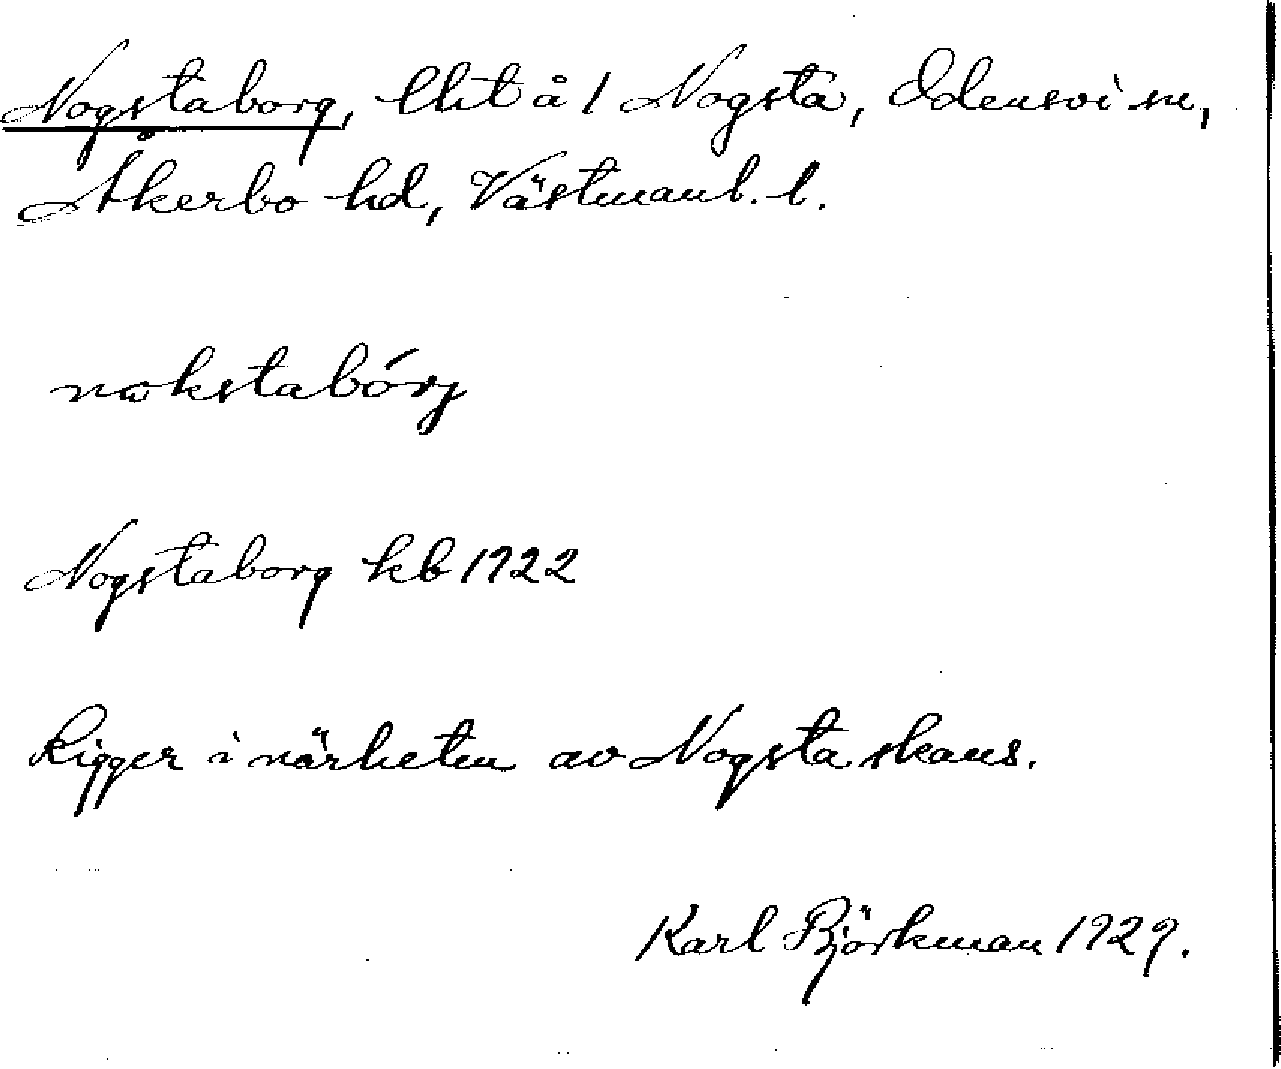 Nogstaborg, lht å 1 Nogsta, Odensvi sn,
Åkerbo hd, Västmanl. l.
nɷkstabórj
Nogstaborg kb 1922
Ligger i närheten av Nogsta skans.
Karl Björkman 1929.